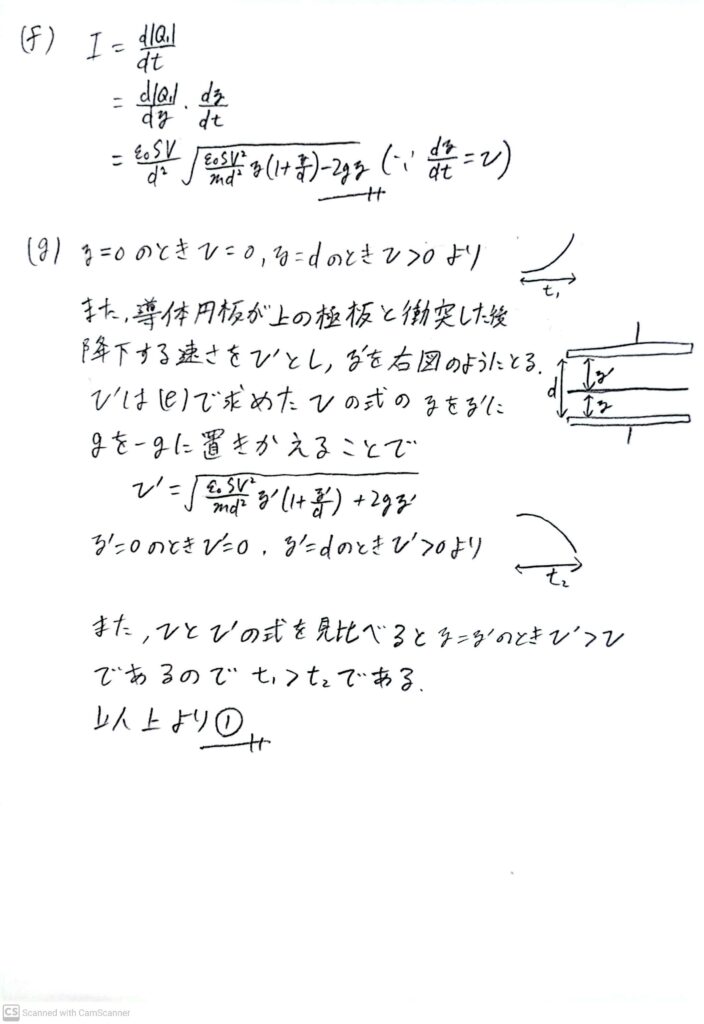 (f) I = d|Q₁|/dt
= d|Q₁|/dz · dz/dt
= ε₀SV/d² √(ε₀SV²/md² z(1+z/d)-2gz) (∵ dz/dt = v)
(g) z=0 のとき v=0, z=dのとき v>0 より
t₁
また, 導体円板が上の極板と衝突した後
降下する速さを v'とし, z'を右図のようにとる.
d z' z
v'は(e)で求めた vの式の zをz'に
gを-gに置きかえることで
v' = √(ε₀SV²/md² z'(1+z'/d)+2gz')
z'=0のとき v'=0, z'=dのとき v'>0より
t₂
また, vとv'の式を見比べると z=z'のとき v'>v
であるので t₁>t₂である.
以上より①
CS Scanned with CamScanner